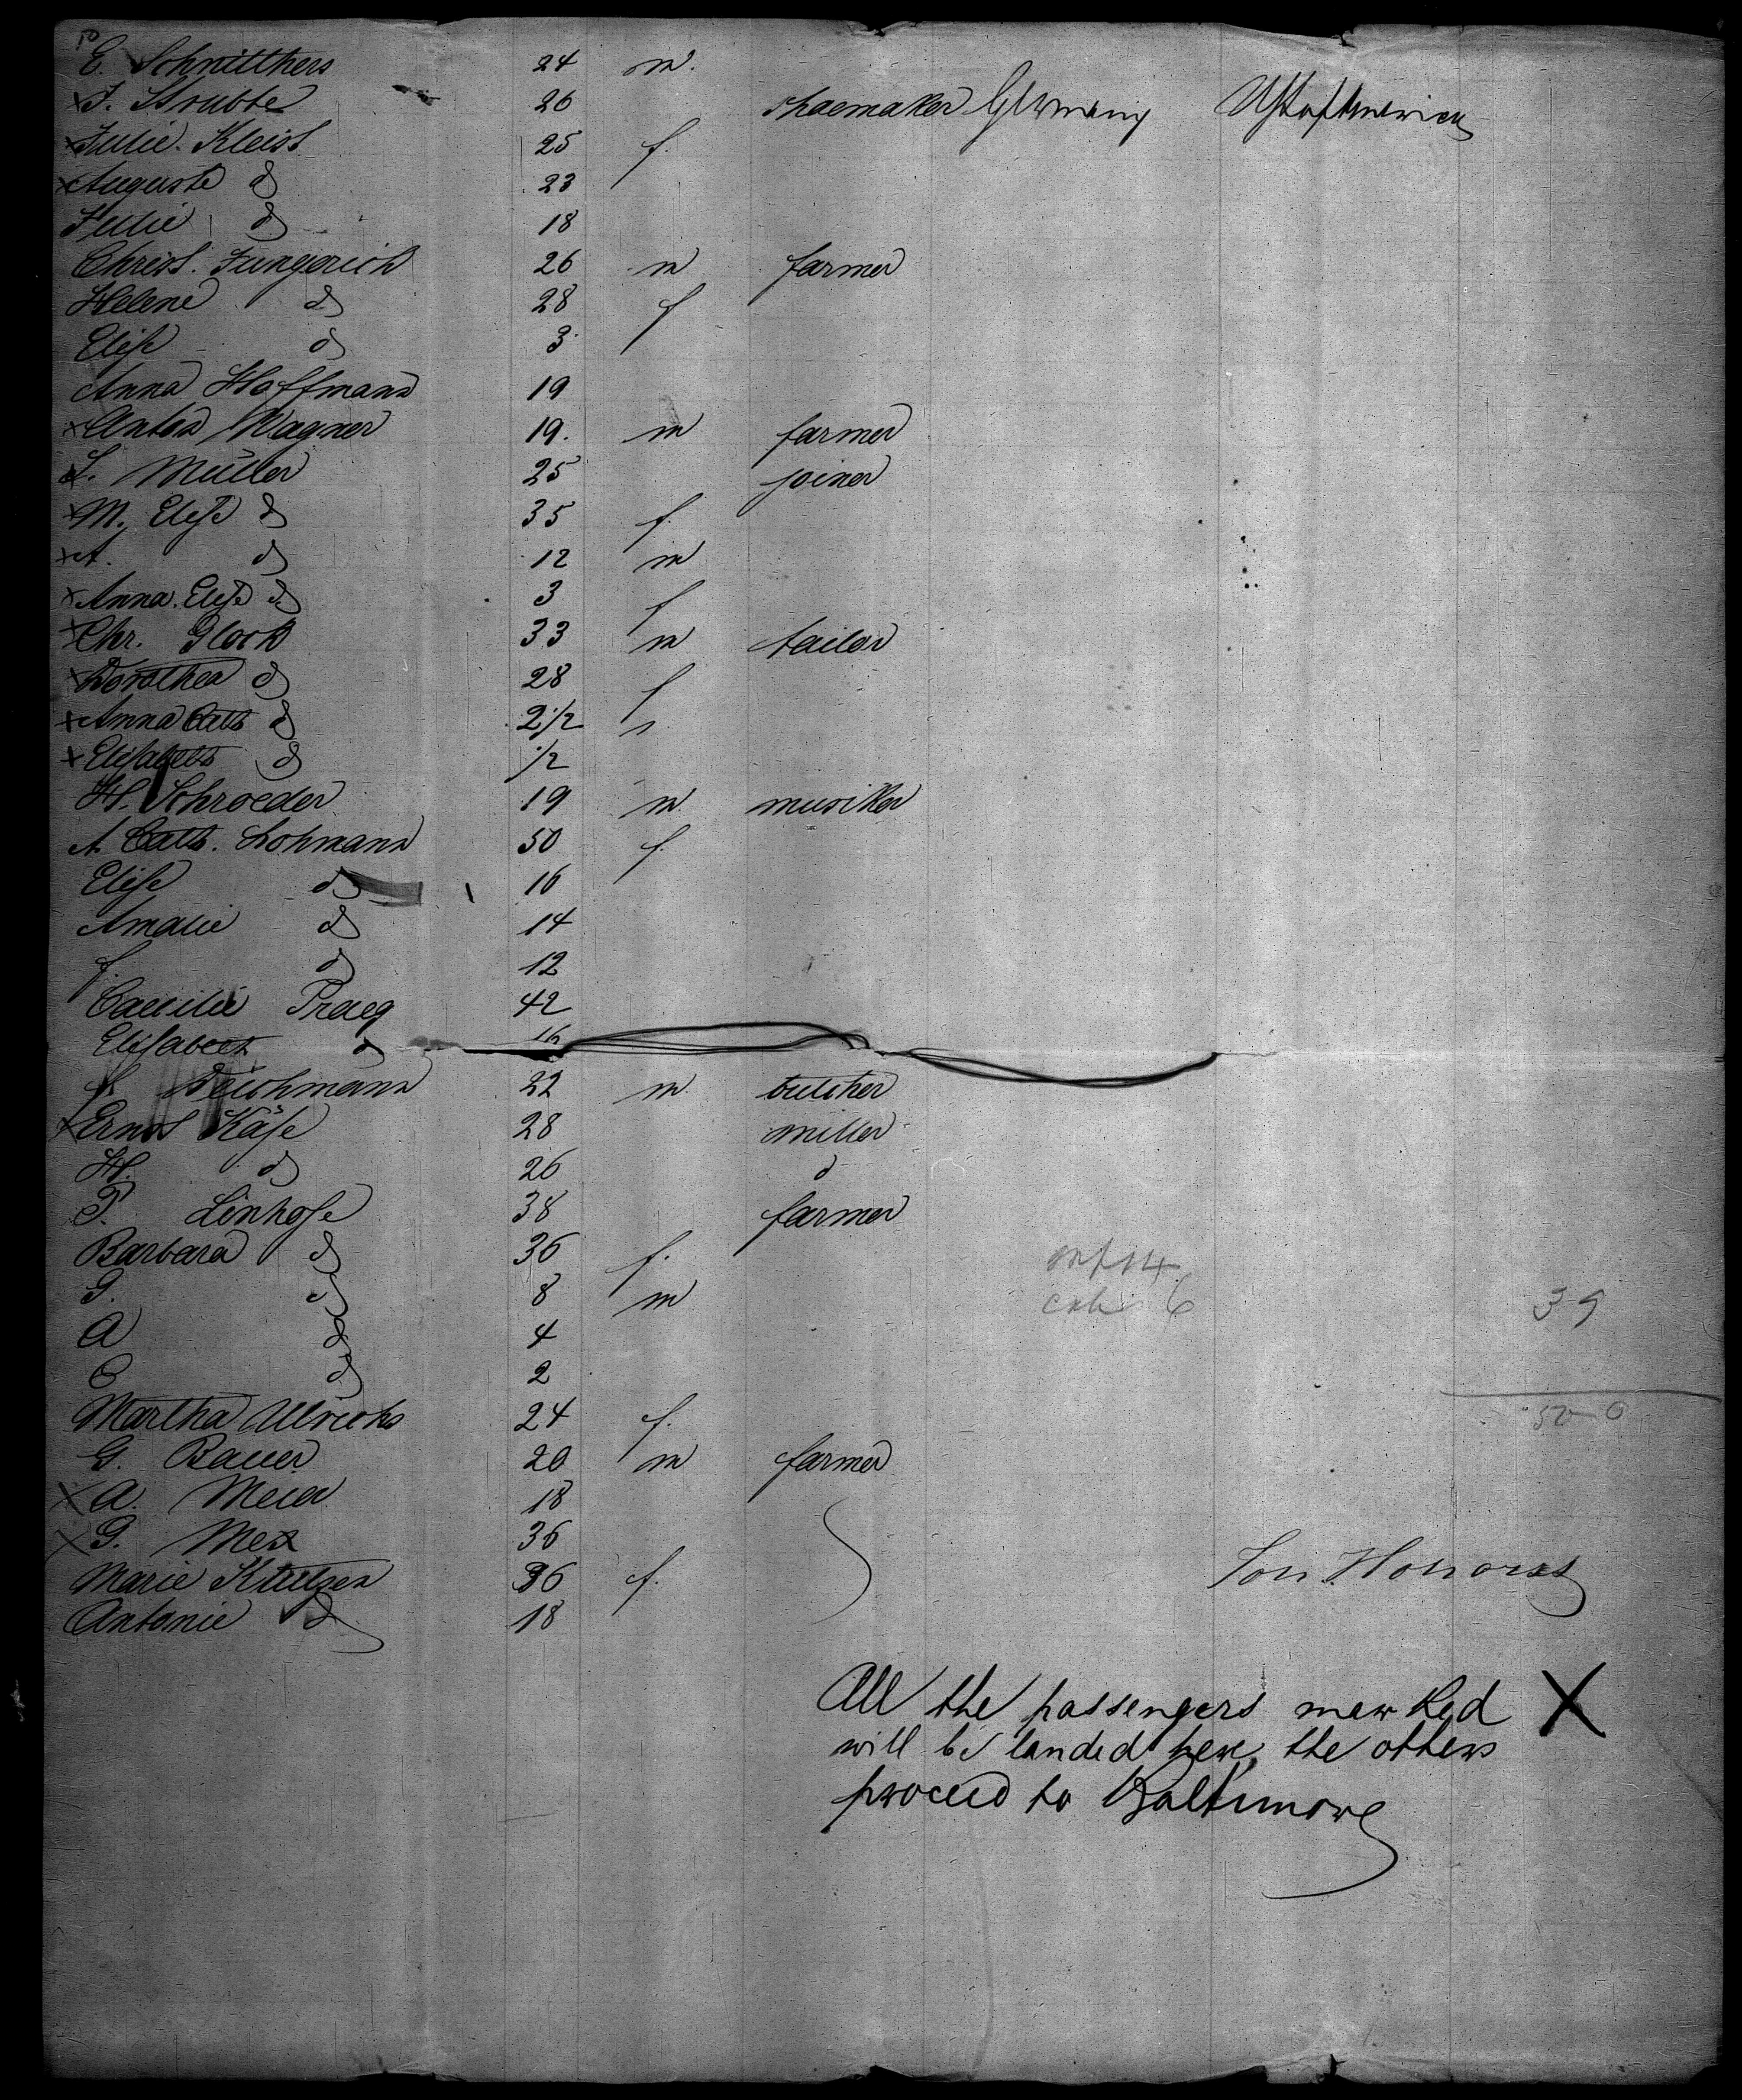 E. Schnitthers 24 m.
x J. Strubbe 26 shoemaker Germany USt of America
x Julie Kleist 25 f.
x Auguste d 23
d 18
Christ. Jungerich 26 m farmer
Helene d 28 f
Elise d 3
Anna Hoffmann 19
x Anton Wagner 19. m farmer
x L. Müller 25 joiner
x M. Elise d 35 f.
x A. d 12 m
x Anna Elise d 3 f
x Chr. Glock 33 m tailor
x Dorothea d 28 f
x Anna Cath d 2 1/2
x Elisabeth d 1/2
H. Schroeder 19 m. musiker
A. Cath. Lohmann 50 f.
Elise d 16
Amalie d 14
f. d 12
Caecilie Praeg 42
Elisabeth d 16
Deichmann 22 m. butcher
x Ernst Käse 28 miller
H. d 26 d
P. Linhose 38 farmer
Barbara d 36 f.
G. d 8 m
A d 4
C d 2
39
Martha Ullrichs 24 f.
G. Bauer 20 m farmer
x A. Meier 18
x G. Mex 36
Marie 36 f.
Antonie d 18
All the passengers marked X
will be landed here, the others
proceed to Baltimore